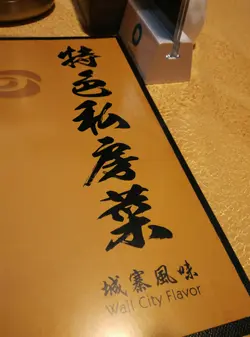 特色私房菜
城寨風味
Wall City Flavor